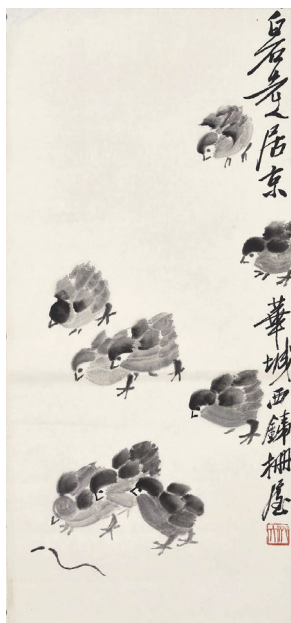 白石老人居京華城西銕柵屋